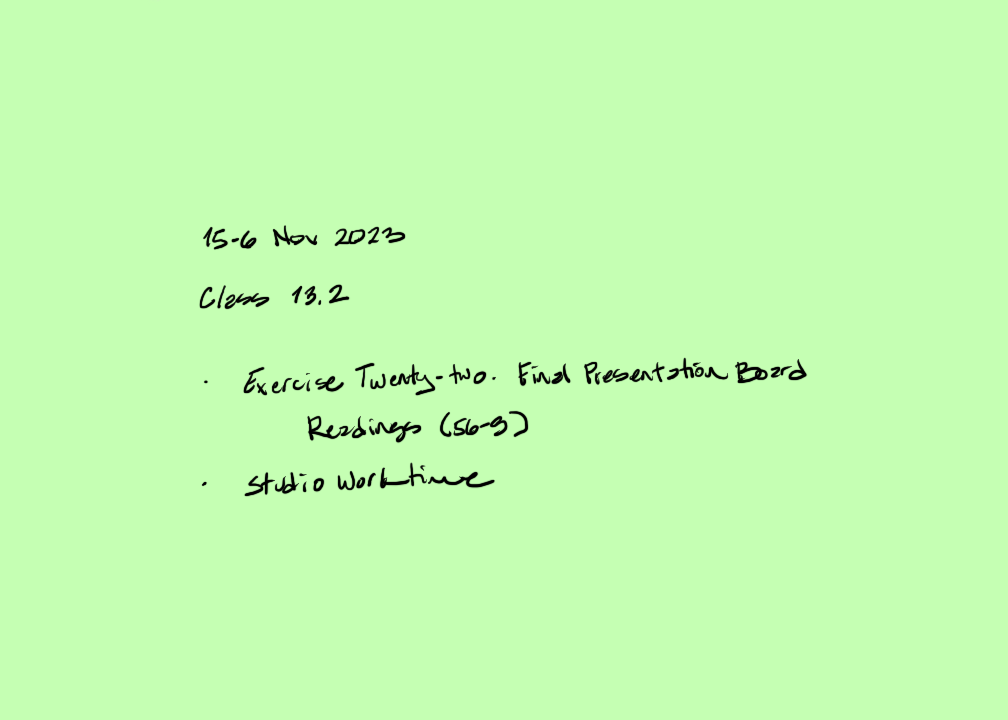 15-6 Nov 2023
Class 13.2
· Exercise Twenty-two. Final Presentation Board
Readings (56-9)
· Studio Worktime